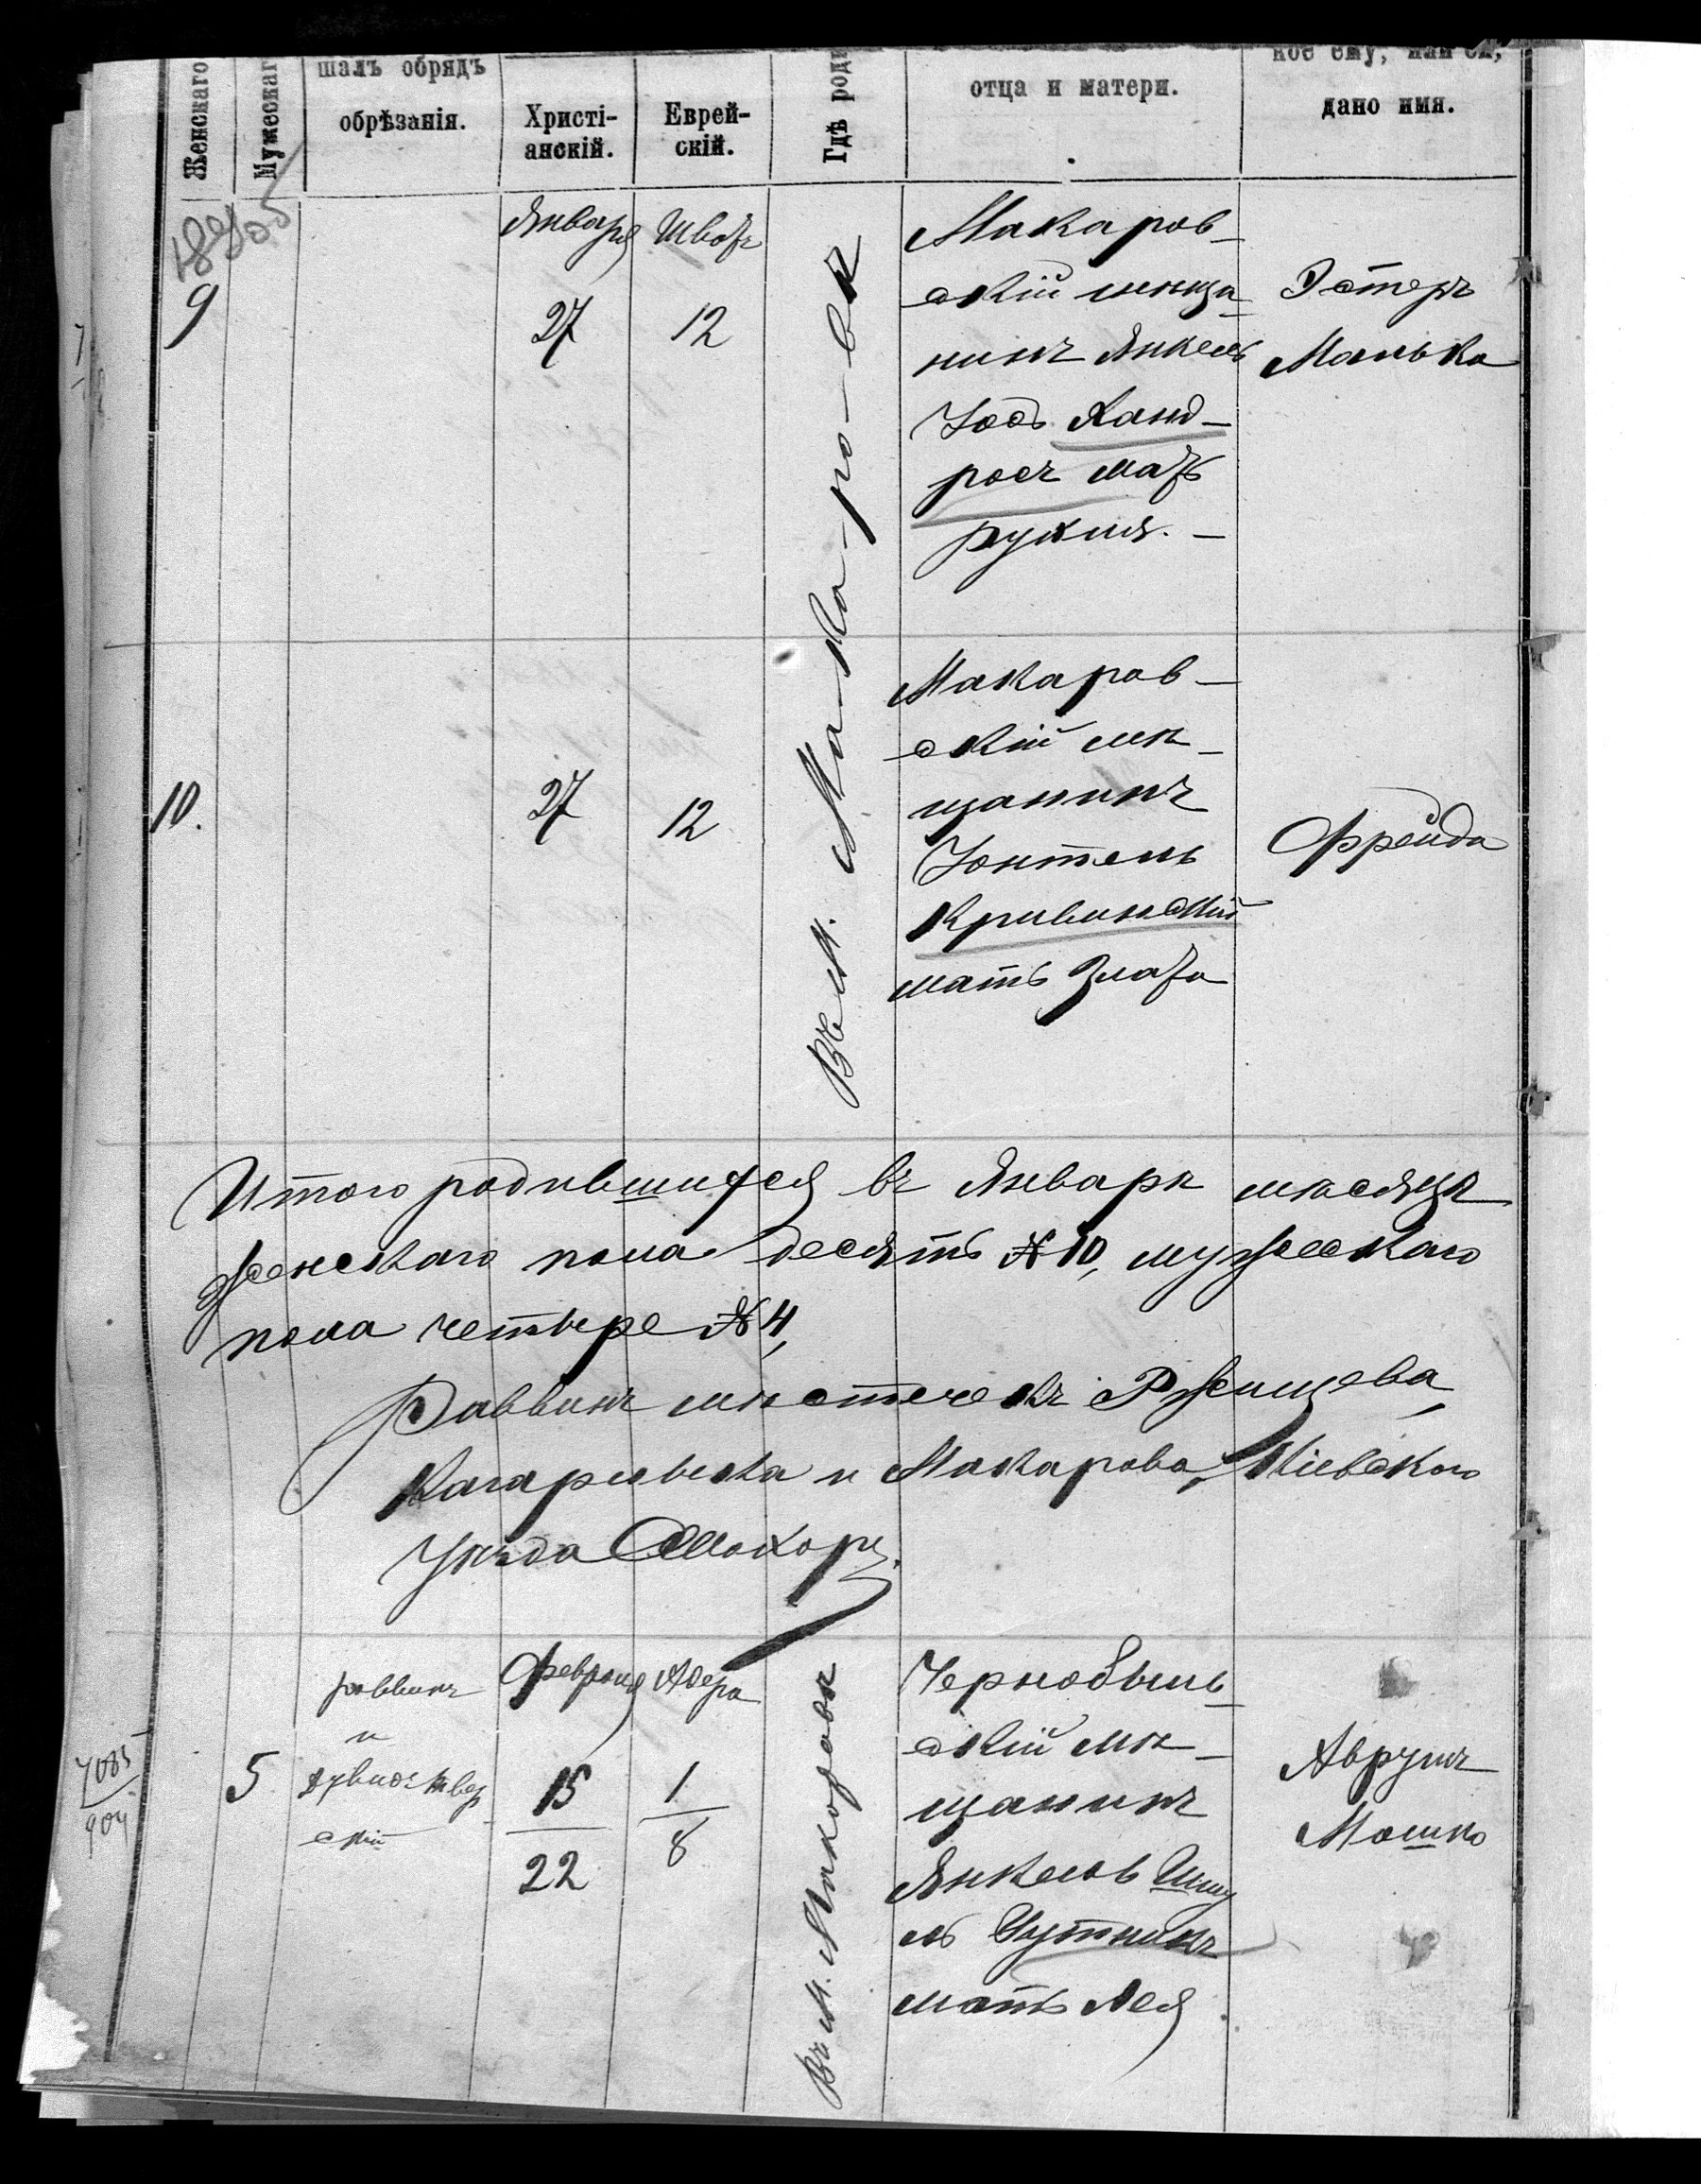 Женскаго
Мужескаг
шалъ обрядъ
обрѣзанія.
Христі-
анскій.
Еврей-
скій.
Гдѣ роди
отца и матери.
кое ему, или ей,
дано имя.
Января
Шватъ
9
27
12
Въ м. Ма-ка-ро-вѣ
Макаров-
скій мѣща-
нинъ Янкель
Іось Ханд-
росъ мать
Рухля. -
Эстеръ
Манька
10.
27
12
Макаров-
скій мѣ-
щанинъ
Іонтель
Кривинскій
мать Злата
Фрейда
Итого родившихся въ Январѣ мѣсяцѣ
женскаго пола десять № 10, мужескаго
пола четыре № 4,
Раввинъ мѣстечекъ Ржищева,
Кагарлыка и Макарова, Кіевскаго
уѣзда
Февраля
Адера
5
раввинъ
и
Твер
скій
15
22
1
8
Въ м. Макаровѣ
Чернобыль-
скій мѣ-
щанинъ
Янкелов Шму
ль
мать Лея
Аврумъ
Мошко
7085
904